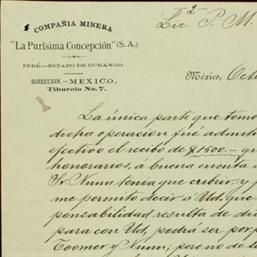 Lic P. M.
COMPAÑIA MINERA
"La Purísima Concepción" (S. A.)
INDÉ.—ESTADO DE DURANGO.
DIRECCION.—MEXICO.
Tiburcio No. 7.
México, Oct
La única parte que tomó
dicha operacion fué admit
efectivo el recibo de $1500.— q
honorarios, á buena cuenta
Sr. Nunn tenía que cubrir, y
me permito decir á Ud., que
ponsabilidad resulta de di
para con Ud., podrá ser por
Toomer y Nunn; pero no de la